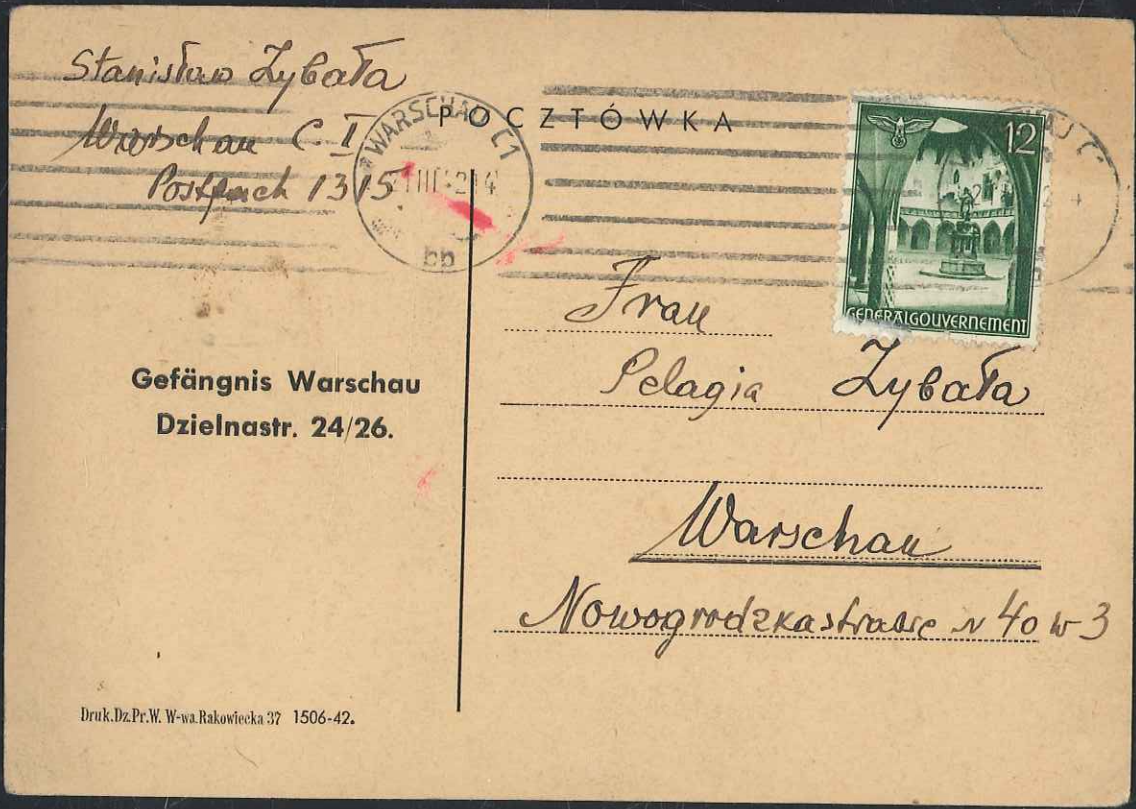 Stanisław Zybała
Warschau C I
Postfach 1315
POCZTÓWKA
WARSCHAU C1
bb
12
GENERALGOUVERNEMENT
Gefängnis Warschau
Dzielnastr. 24/26.
Frau
Pelagia Zybała
Warschau
Nowogrodzkastrasse N 40 w 3
Druk.Dz.Pr.W. W-wa.Rakowiecka 37 1506-42.